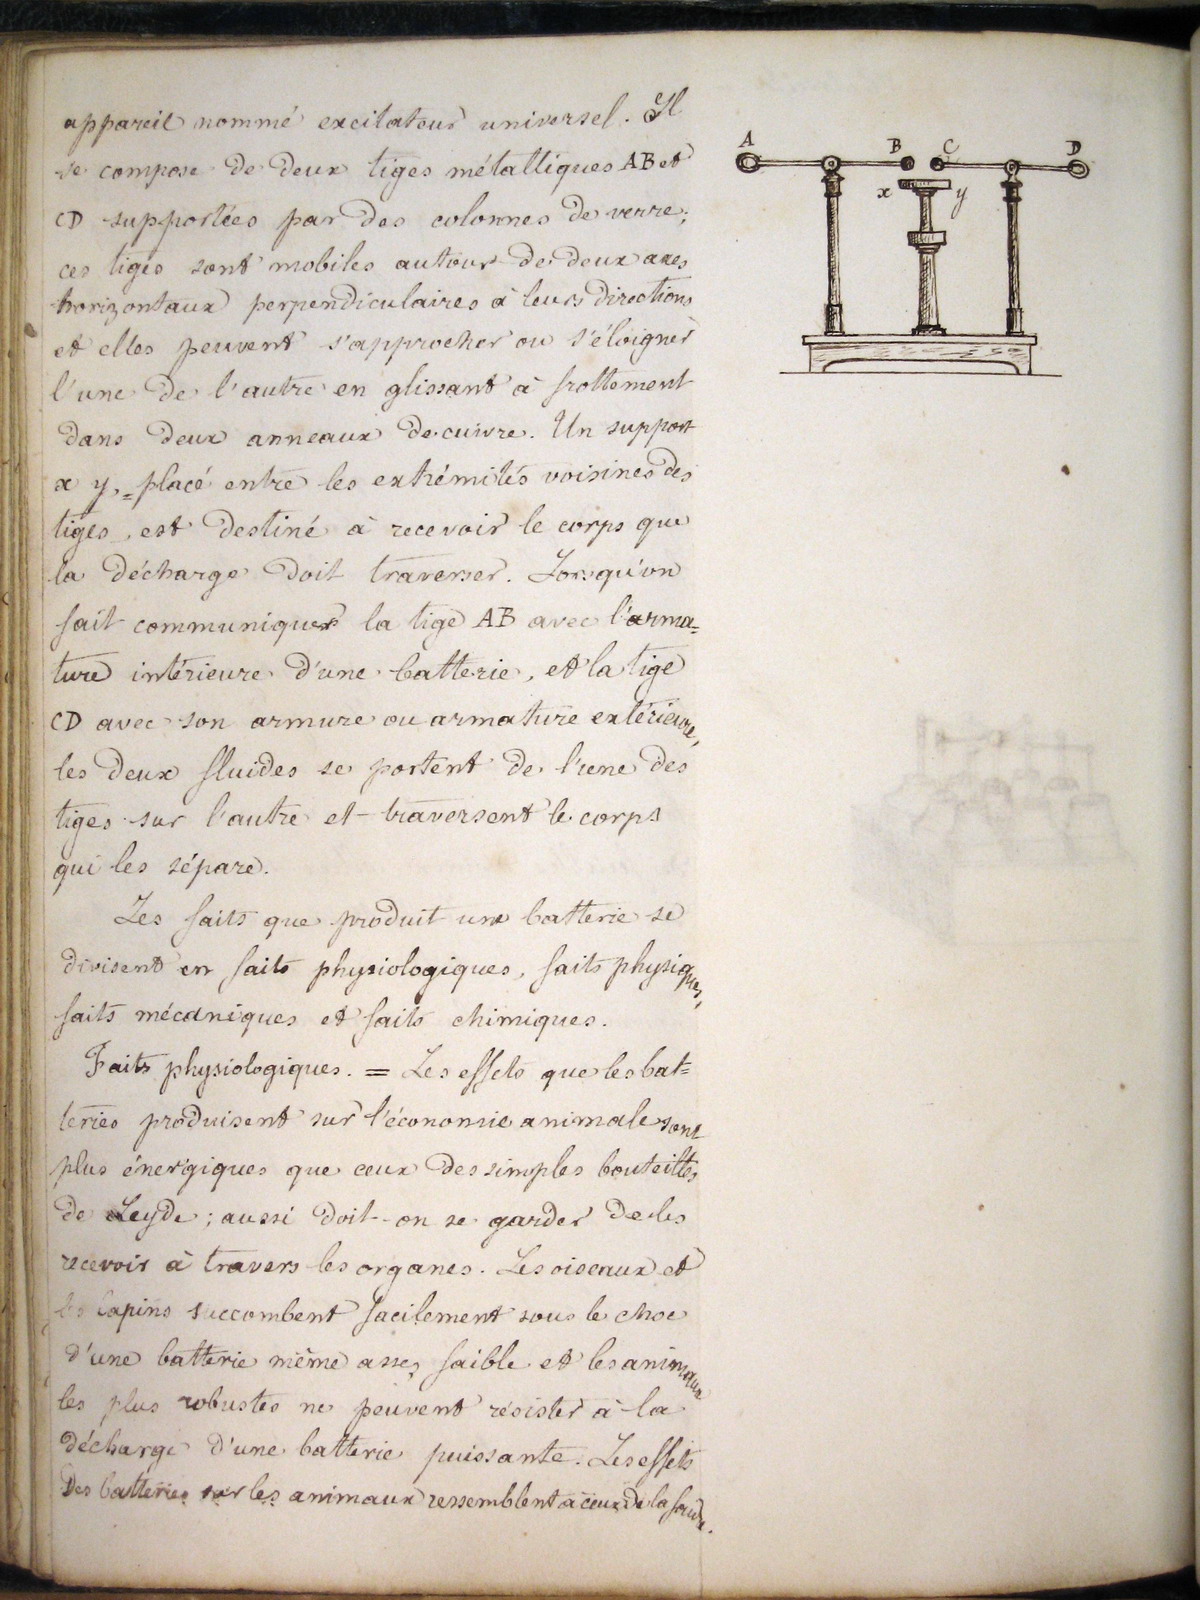 appareil nommé excitateur universel. Il
se compose de deux tiges métalliques AB et
CD supportées par des colonnes de verre;
ces tiges sont mobiles autour de deux axes
horizontaux perpendiculaires à leurs directions
et elles peuvent s'approcher ou s'éloigner
l'une de l'autre en glissant à frottement
dans deux anneaux de cuivre. Un support
x y, placé entre les extrémités voisines des
tiges, est destiné à recevoir le corps que
la décharge doit traverser. Lorsqu'on
fait communiquer la tige AB avec l'arma=
ture intérieure d'une batterie, et la tige
CD avec son armure ou armature extérieure,
les deux fluides se portent de l'une des
tiges sur l'autre et traversent le corps
qui les sépare.
Les faits que produit une batterie se
divisent en faits physiologiques, faits physiques,
faits mécaniques et faits chimiques.
Faits physiologiques. = Les effets que les bat=
teries produisent sur l'économie animale sont
plus énergiques que ceux des simples bouteilles
de Leyde; aussi doit-on se garder de les
recevoir à travers les organes. Les oiseaux et
les lapins succombent facilement sous le choc
d'une batterie même assez faible et les animaux
les plus robustes ne peuvent résister à la
décharge d'une batterie puissante. Les effets
des batteries sur les animaux ressemblent à ceux de la foudre.
A B C D
x y